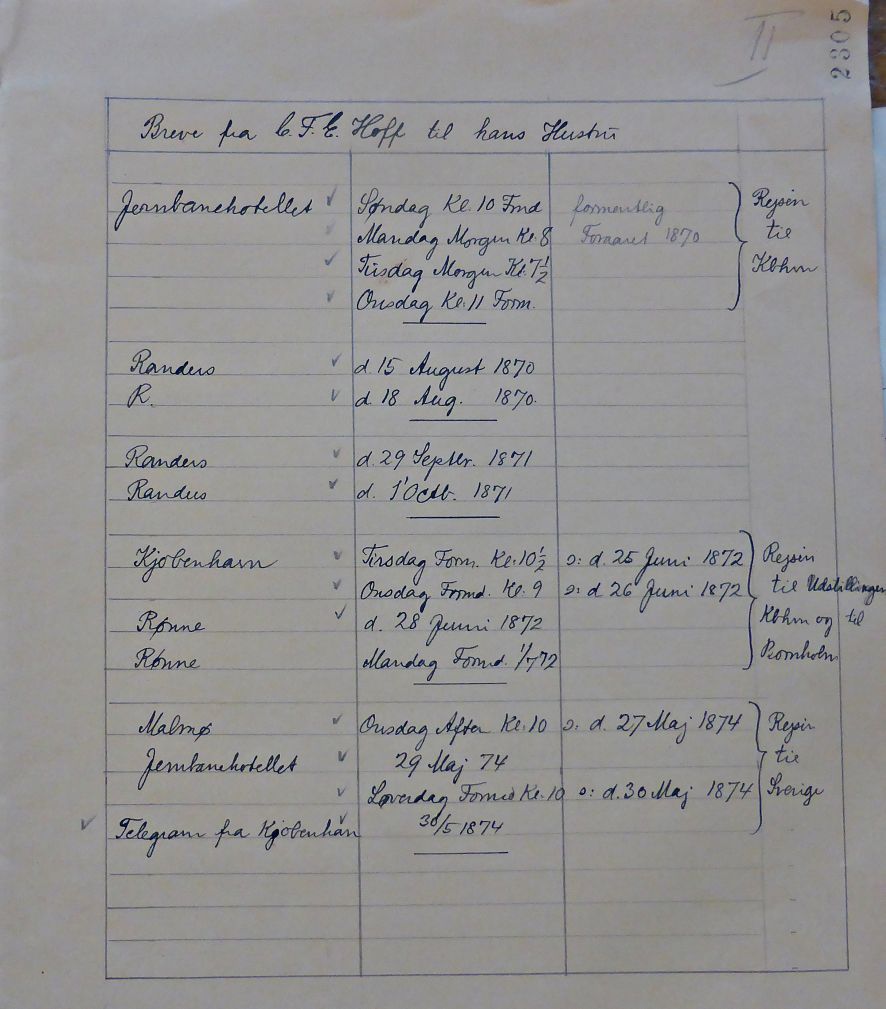 II
2805
Breve fra C. F. E. Hoff til hans Hustru
Jernbanehotellet ✓ Søndag Kl. 10 Fmd formentlig Rejsen
✓ Mandag Morgen Kl. 8 Foraaret 1870 til
✓ Tirsdag Morgen Kl. 7½ Kbhvn
✓ Onsdag Kl. 11 Form.
Randers ✓ d. 15 August 1870
R. ✓ d. 18 Aug. 1870.
Randers ✓ d. 29 Septbr. 1871
Randers ✓ d. 1' Octb. 1871
Kjøbenhavn ✓ Tirsdag Form. Kl. 10½ ɔ: d. 25 Juni 1872 Rejsen
✓ Onsdag Formd. Kl. 9 ɔ: d 26 Juni 1872 til Udstillingen
Rønne ✓ d. 28 Juuni 1872 Kbhvn og til
Rønne Mandag Formd. 1/7 72 Bornholm
Malmø ✓ Onsdag Aften Kl. 10 ɔ: d. 27 Maj 1874 Rejsen
Jernbanehotellet ✓ 29 Maj 74 til
✓ Løverdag Formd Kl. 10 ɔ: d. 30 Maj 1874 Sverige
✓ Telegram fra Kjøbenhavn ✓ 30/5 1874